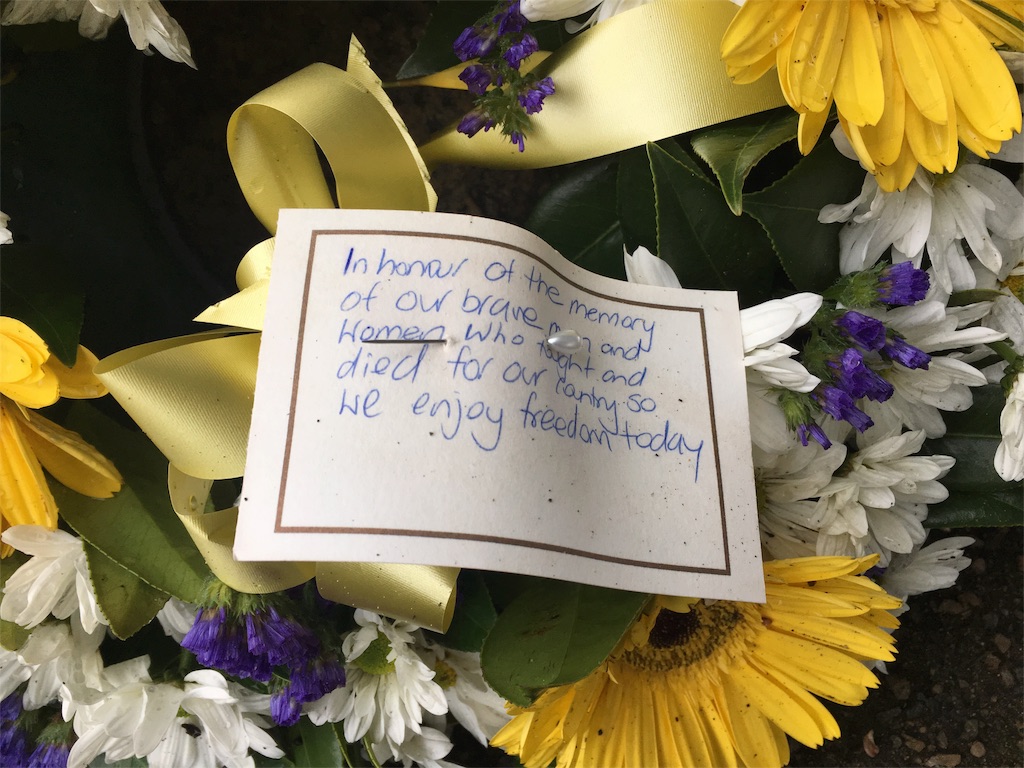 In honour of the memory
of our brave men and
Women who fought and
died for our country so
we enjoy freedom today